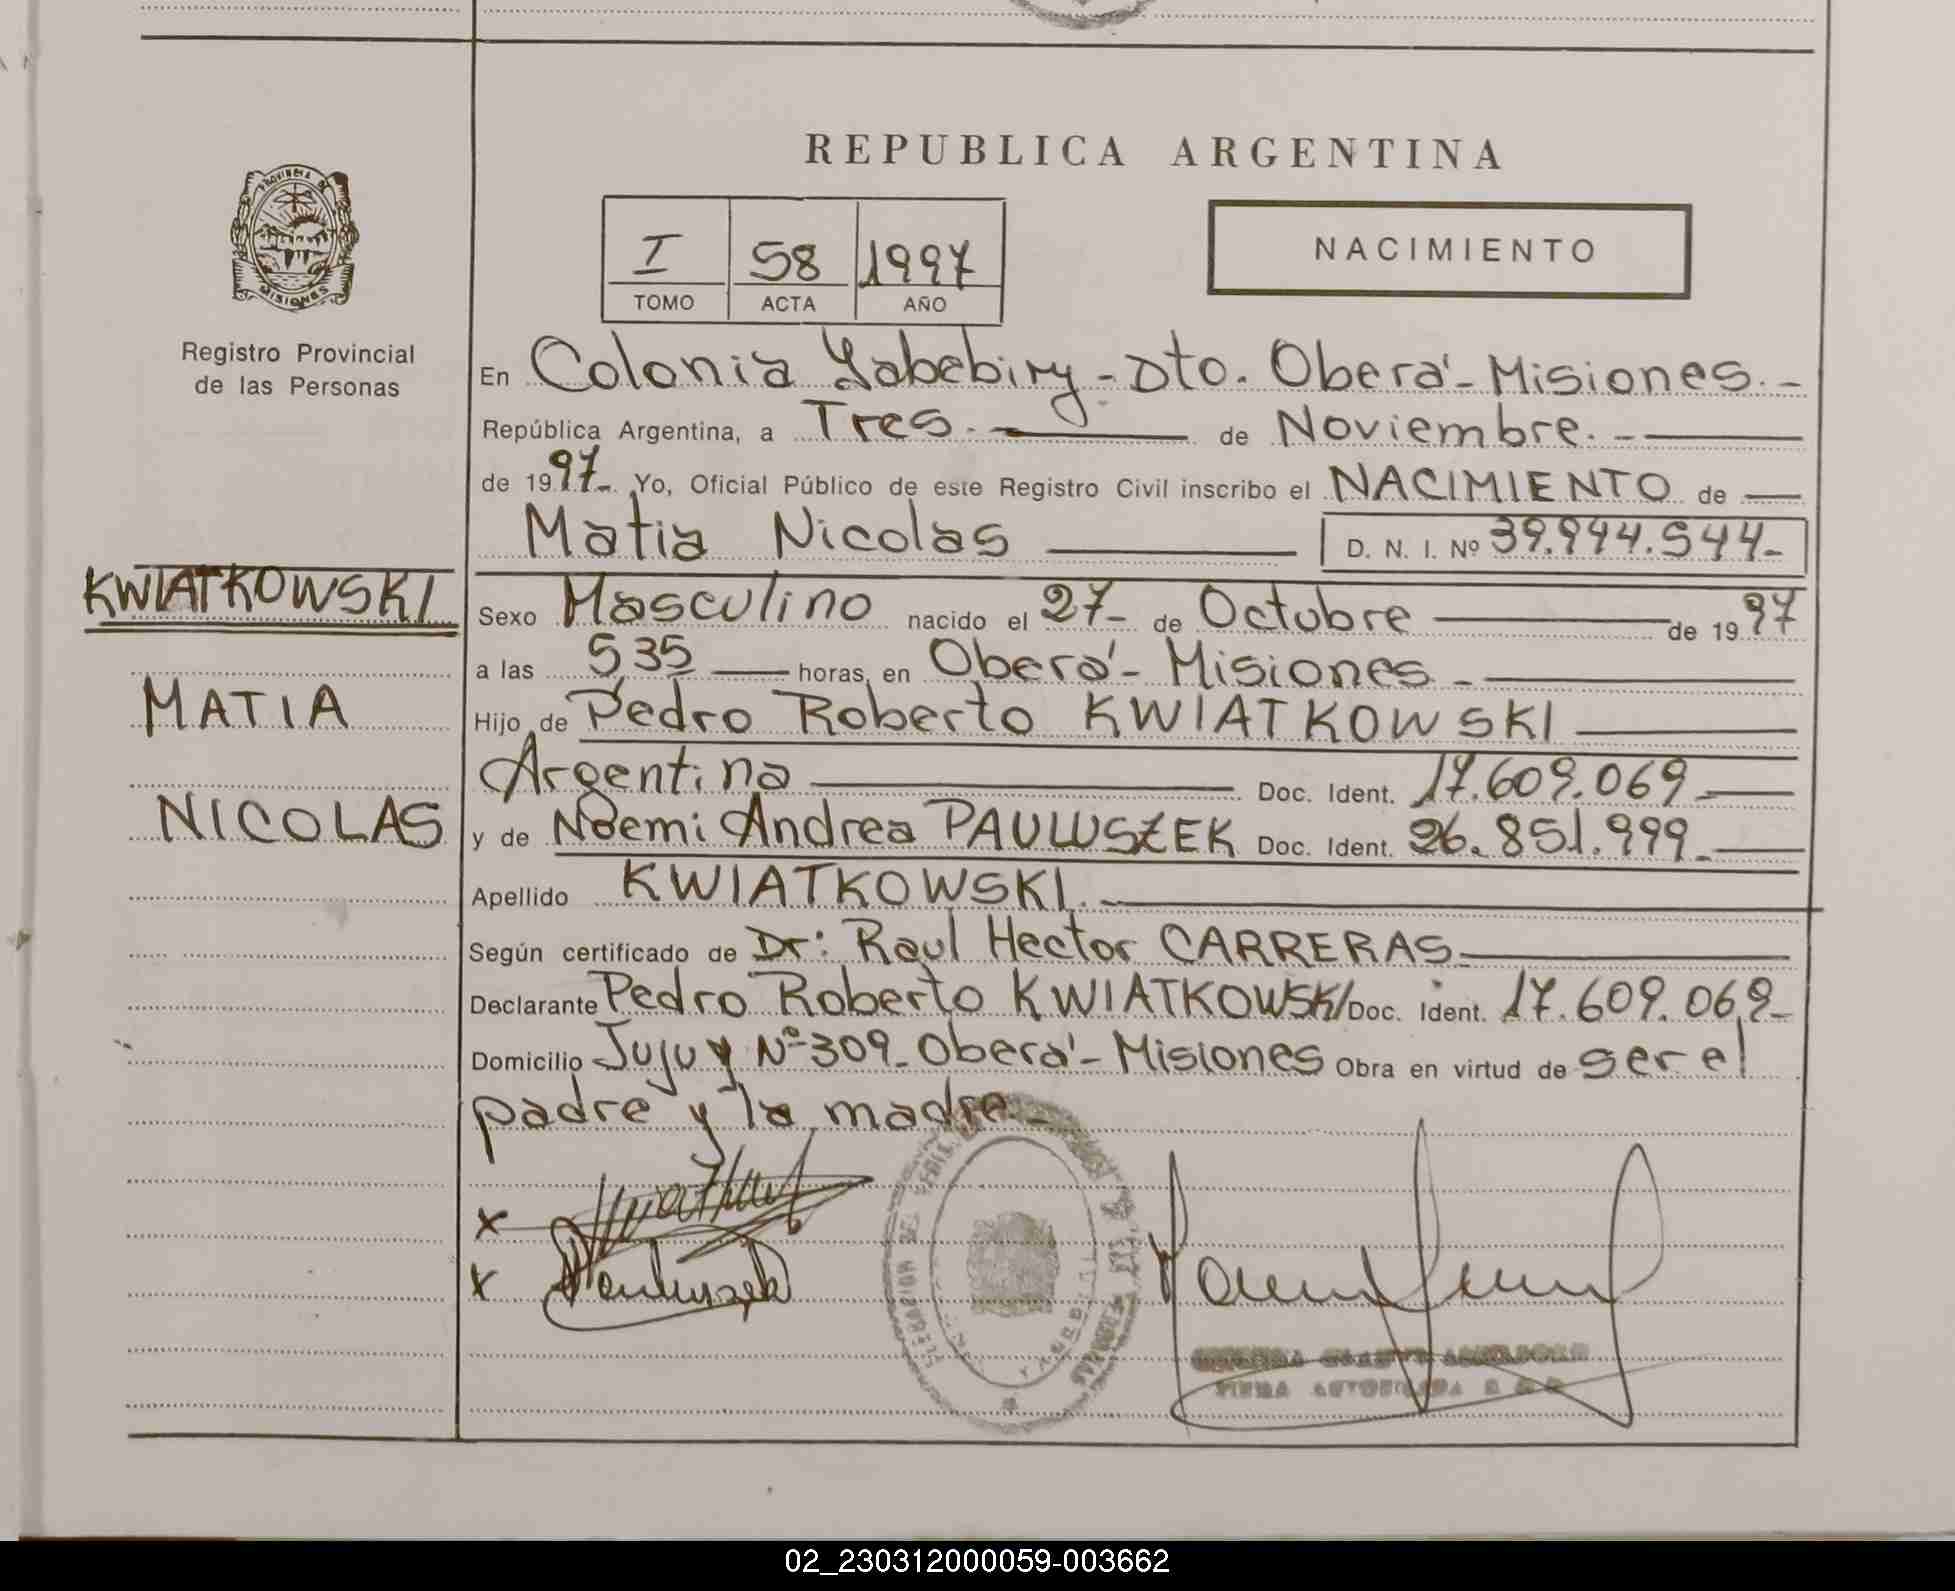 REPUBLICA ARGENTINA
PROVINCIA DE
MISIONES
Registro Provincial
de las Personas
I 58 1997
TOMO ACTA AÑO
NACIMIENTO
En Colonia Yabebiry - Dto. Oberá - Misiones. -
República Argentina, a Tres. - de Noviembre. -
de 1997- Yo, Oficial Público de este Registro Civil inscribo el NACIMIENTO de
Matia Nicolas D. N. I. Nº 39.944.544-
KWIATKOWSKI
MATIA
NICOLAS
Sexo Masculino nacido el 27- de Octubre de 1997
a las 535 horas, en Oberá - Misiones -
Hijo de Pedro Roberto KWIATKOWSKI
Argentina Doc. Ident. 17.609.069-
y de Noemi Andrea PAULUSZEK Doc. Ident. 26.851.999-
Apellido KWIATKOWSKI. -
Según certificado de Dr: Raul Hector CARRERAS
Declarante Pedro Roberto KWIATKOWSKI Doc. Ident. 17.609.069-
Domicilio Jujuy Nº 309- Oberá - Misiones Obra en virtud de ser el
padre y la madre. -
x
x Pauluszek
FIRMA AUTORIZADA
02_230312000059-003662